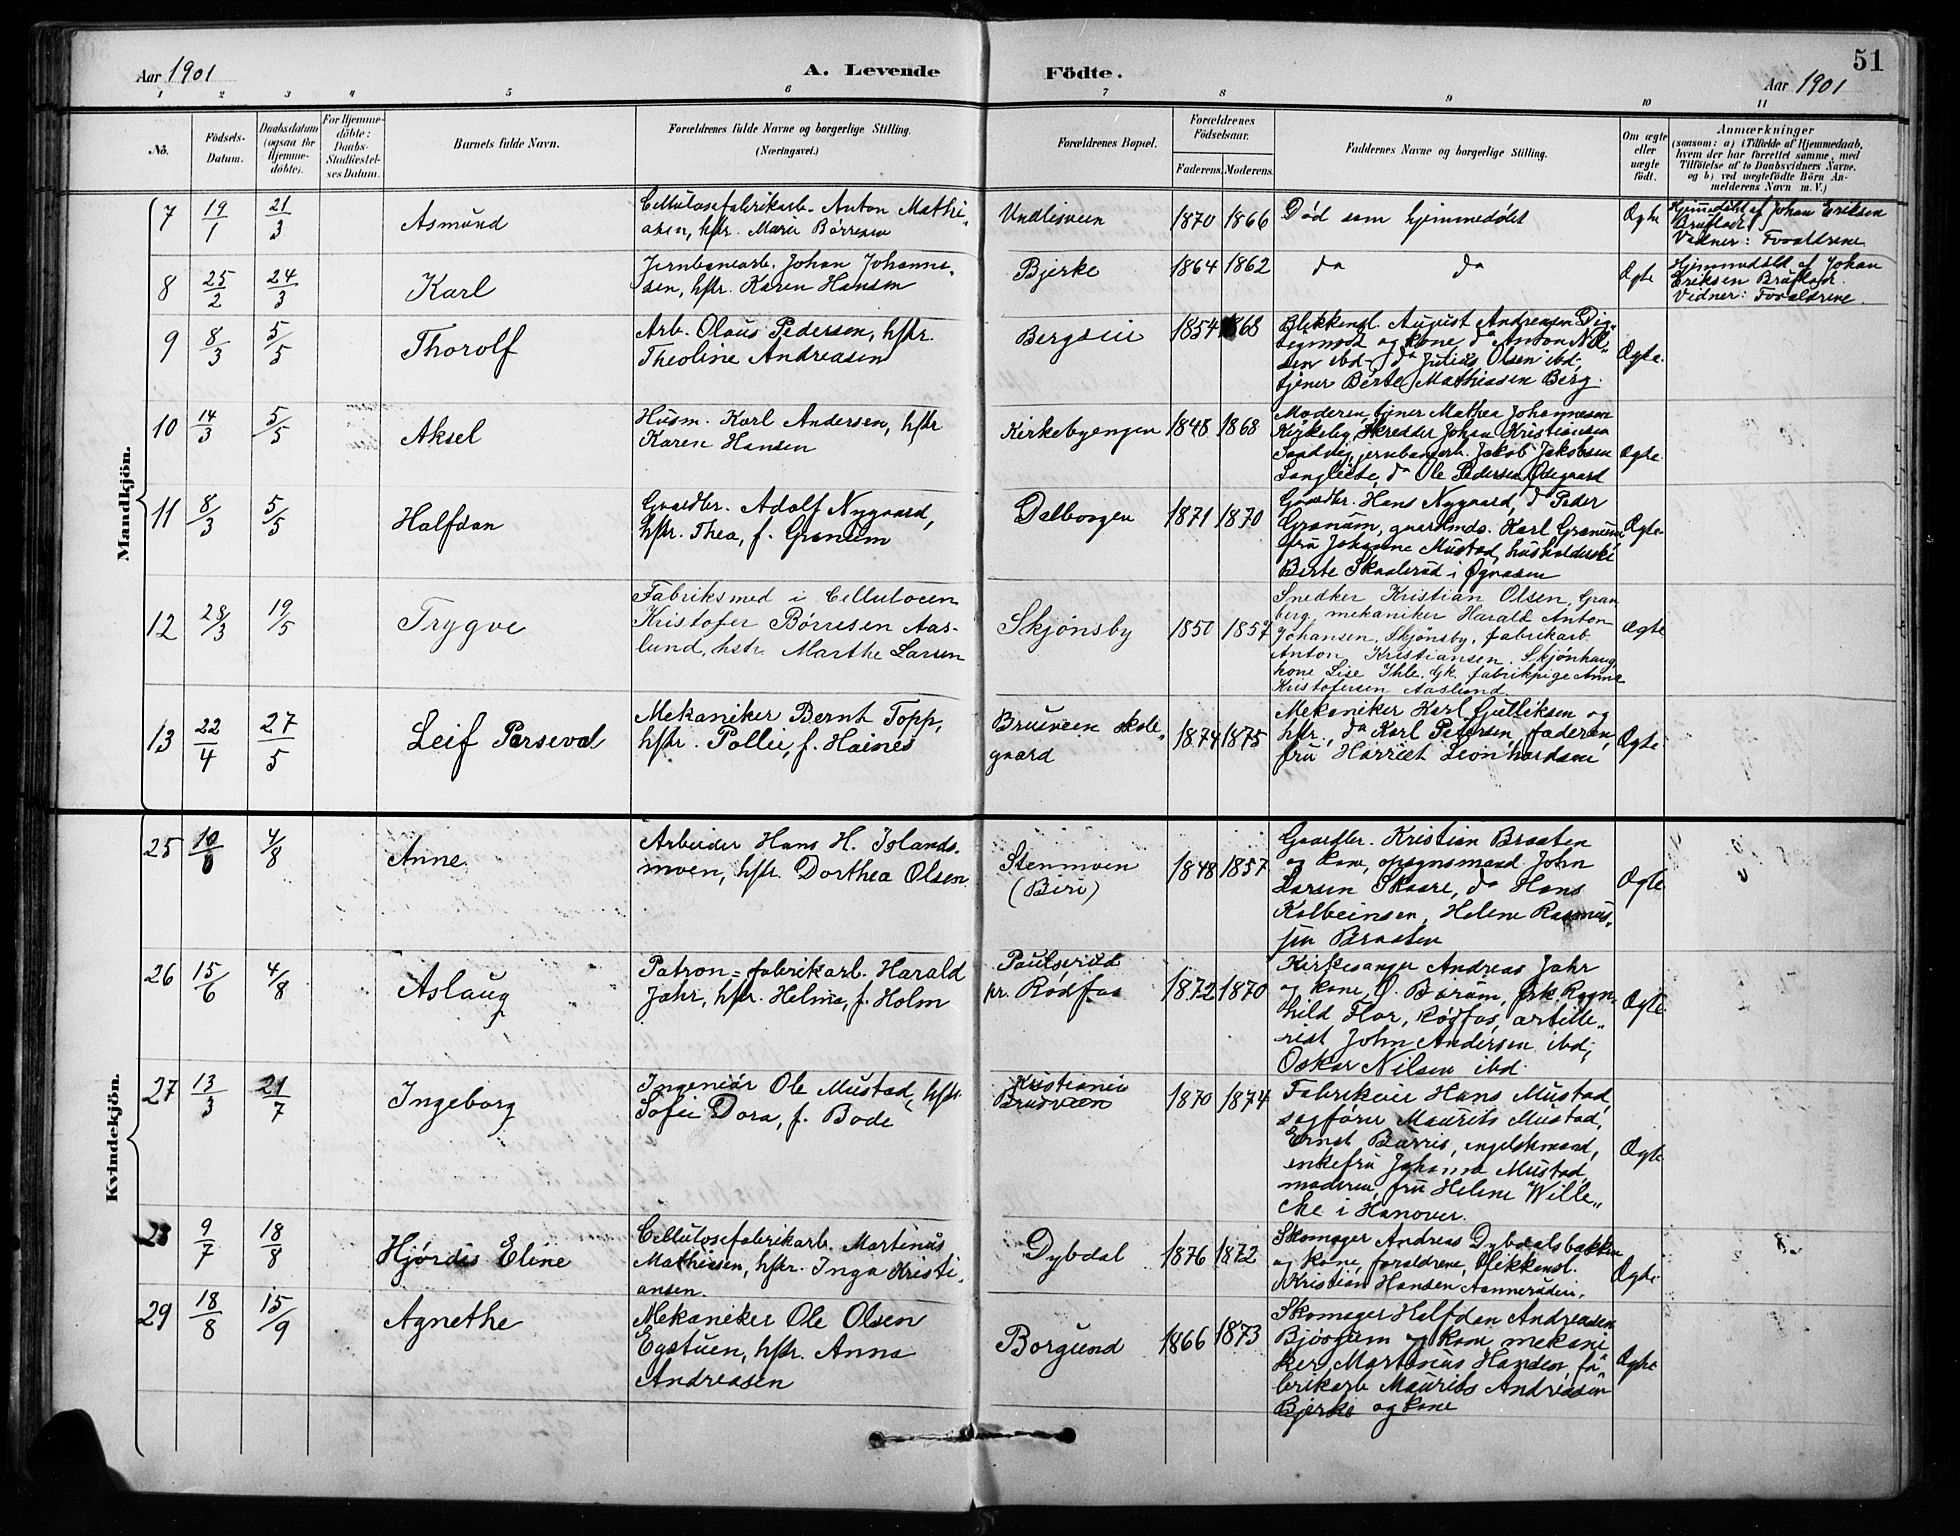 51
Aar 1901
A. Levende Födte.
Aar 1901
1 2 3 4 5 6 7 8 9 10 11
No.
Födsels-
Datum.
Daabsdatum
(ogsaa for
Hjemme-
döbte).
For Hjemme-
döbte:
Daabs-
Stadfæstel-
ses Datum.
Barnets fulde Navn.
Forældrenes fulde Navne og borgerlige Stilling.
(Næringsvei.)
Forældrenes Bopæl.
Forældrenes
Födselsaar.
Faderens. Moderens.
Faddernes Navne og borgerlige Stilling.
Om ægte
eller
uægte
födt.
Anmærkninger
(saasom: a) i Tilfælde af Hjemmedaab,
hvem der har forrettet samme, med
Tilföielse af to Daabsvidners Navne,
og b) ved uægtefödte Börn An-
melderens Navn m. V.)
Mandkjön.
7 19/1 21/3 Asmund
Cellulosefabrikarb. Anton Mathi-
asen, hstr. Marie Børresen
Undlisveen 1870 1866
Død som hjemmedøbt
Ægte
Hjemmedøbt af Johan Eriksen
Brufladt
Vidner: Forældrene
8 25/2 24/3 Karl
Jernbanearb. Johan Johanne-
sen, hstr. Karen Hansen
Bjerke 1864 1862
da da
Ægte
Hjemmedøbt af Johan
Eriksen
Vidner: Forældrene
9 8/3 5/5 Thorolf
Arb. Olaus Pedersen, hstr.
Theoline Andreasen
Bergslie 1854 1868
Blikkensl. August Andreasen
og kone, da Anton Ol-
sen ibd, da Julius Olsen ibd,
tjener Berte Mathiasen Berg.
Ægte.
10 14/3 5/5 Aksel
Husm. Karl Andersen, hstr
Karen Hansen
Kirkebyengen 1848 1868
Moderen, tjener Mathea Johannesen
Kirkeby, Skredder Johan Kristiansen
jernbanearb. Jakob Jakobsen
da Ole Pedersen Ødegaard
Ægte.
11 8/3 5/5 Halfdan
Gaardbr. Adolf Nygaard,
hstr. Thea, f. Granum
Dalborgen 1871 1870
Gaardbr. Hans Nygaard, da Peder
Granum, gaardmds. Karl Granum
fru Johanne Mustad, husholderske
Berte Skaalerud i Ognasen
Ægte.
12 28/3 19/5 Trygve
Fabriksmed i Cellulocen
Kristofer Børresen Aas-
lund, hstr. Marthe Larsen
Skjønsby 1850 1857
Snedker Kristian Olsen, Gran
berg, mekaniker Harald Anton
Johansen, Skjønsby, fabrikarb.
Anton Kristiansen. Skjønhaug,
kone Lise Ihle, Gk, fabrikpige Anne
Kristofersen Aaslund.
Ægte
13 22/4 27/5 Leif Perseval
Mekaniker Bernt Topp,
hstr. Pollie, f. Haines
Brusveen skole-
gaard
1874 1875
Mekaniker Karl Gulliksen og
hstr., da Karl Petersen, faderen,
fru Harriet Leonhardsen
Ægte
Kvindekjön.
25 10/6 4/8 Anne
Arbeider Hans H. Islands-
moen, hstr. Dorthea Olsen
Stenmoen
(Biri)
1848 1857
Gaardbr. Kristian Braaten
og kone, opsynsmand John
Larsen Skaare, da Hans
Kolbeinsen, Helene Rasmus-
sen Braaten
Ægte
26 15/6 4/8 Aslaug
Patron-fabrikarb. Harald
Jahr, hstr. Helma, f. Holm
Paulserud
pr. Rødfos
1872 1870
Kirkesanger Andreas Jahr
og kone, O. Bærum, frk. Ragn-
hild Flor, Rødfos, artille-
rist John Andersen ibd,
Oskar Nilsen ibd
Ægte
27 13/3 21/7 Ingeborg
Ingeniør Ole Mustad, hstr.
Sofie Dora, f. Bode
Kristiania
Brusveen
1870 1874
Fabrikeier Hans Mustad,
sagfører Maurits Mustad,
Ernst Barris, engelskmand,
enkefru Johanne Mustad,
moderen, fru Helene Wille-
cke i Hanover.
Ægte
28 9/7 18/8 Hjørdis Eline
Cellulosefabrikarb. Martinus
Mathisen, hstr. Inga Kristi-
ansen.
Dybdal 1876 1872
Skomager Andreas Dybdalsbakken
og kone, forældrene, blikkensl.
Kristian Hansen Aanneruden.
Ægte.
29 18/8 15/9 Agnethe
Mekaniker Ole Olsen
Egstuen, hstr. Anna
Andreasen
Borgund 1866 1873
Skomager Halfdan Andreasen
og kone, mekani
ker Martinus Hansen, fa-
brikarb Maurits Andreasen
Bjerke og kone
Ægte